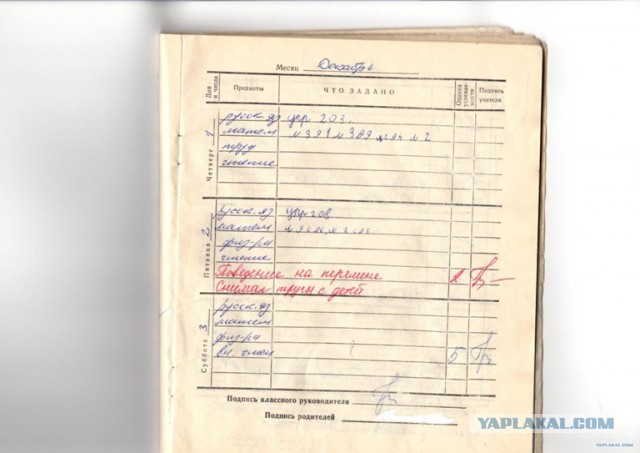 Месяц Декабрь
Дни и числа Предметы ЧТО ЗАДАНО Оценка успеваемости Подпись учителя
Четверг 1
русск. яз упр 203.
матем м 391 м 389 м 2
труд
чтение
Пятница 2
русск. яз упр
матем
физ-ра
чтение
Поведение на перемене 2
Снимал трусы с детей
Суббота 3
русск. яз
матем
физ-ра
вн. чтен 5
Подпись классного руководителя
Подпись родителей
YAPLAKAL.COM
yaplakal.com